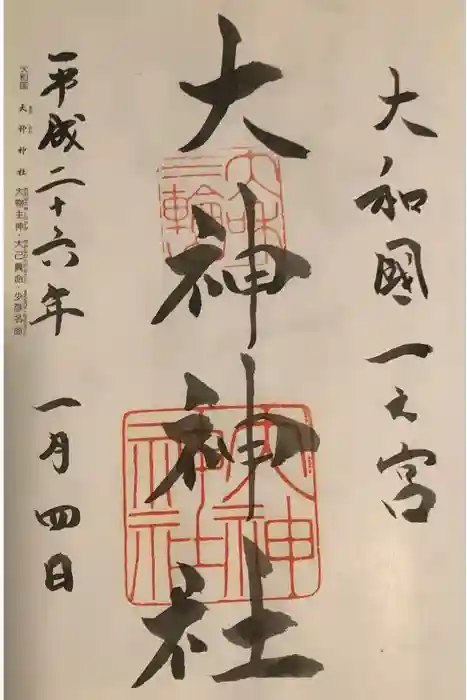 大和國一之宮
大神神社
平成二十六年 一月四日
大和国 大神神社 大物主神・大己貴命・少彦名命
大和
三輪
大神
神社